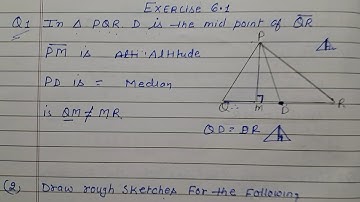 Exercise 6.1
Q1 In Δ PQR. D is the mid point of QR
PM is Altitude
PD is = Median
is QM ≠ MR
P
Q M D R
QD = DR
(2) Draw rough sketches For the Following,